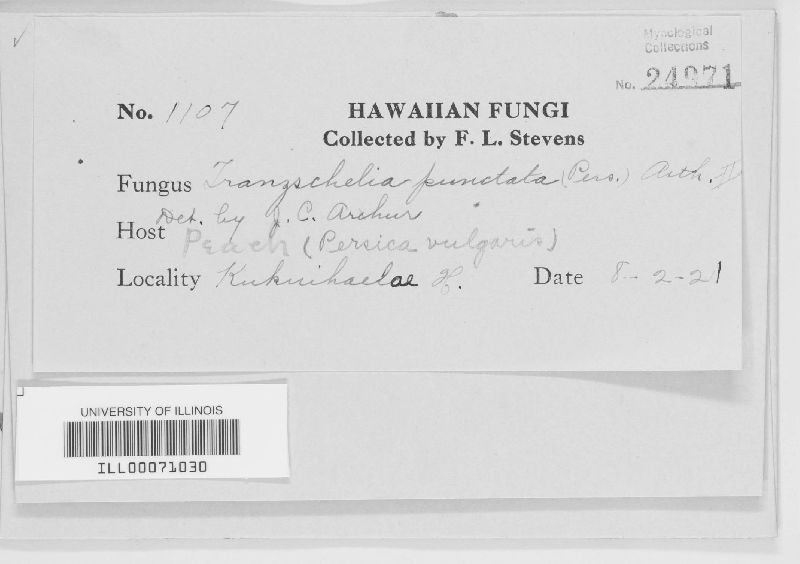 Mycological
Collections
No. 24971
No. 1107
HAWAIIAN FUNGI
Collected by F. L. Stevens
Fungus Tranzschelia punctata (Pers.) Arth. II
Det. by J. C. Arthur
Host Peach (Persica vulgaris)
Locality Kukuihaelae H. Date 8-2-21
UNIVERSITY OF ILLINOIS
ILL00071030